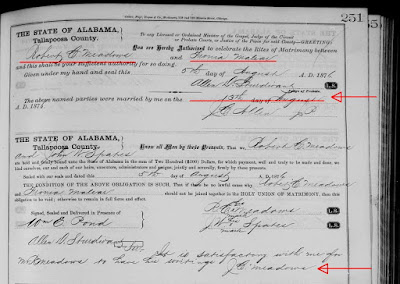 251
THE STATE OF ALABAMA,
Tallapoosa County.
To any Licensed or Ordained Minister of the Gospel, Judge of the Circuit
or Probate Courts, or Justice of the Peace for said County—GREETING:
You are Hereby Authorized to celebrate the Rites of Matrimony between
Robert C Meadows and
and this shall be your sufficient authority for so doing.
Given under my hand and seal this 5th day of August A. D. 1876
Allen D. Sturdivant
Judge of Probate.
The above named parties were married by me on the 13th day of August
A. D. 1876. J. C. Allen J. P.
THE STATE OF ALABAMA,
Tallapoosa County.
Know all Men by these Presents, That we Robert C Meadows
and John W. Spates
are held and firmly bound unto the State of Alabama in the sum of Two Hundred (200) Dollars, for payment, well and truly to be made and done, we
bind ourselves, our and each of our heirs, executors, administrators and assigns, jointly and severally, firmly by these presents.
Sealed with our seals and dated this 5th day of August A. D. 1876
THE CONDITION OF THE ABOVE OBLIGATION IS SUCH, That if there be no lawful cause why Robert C Meadows
should not be joined together in the HOLY UNION OF MATRIMONY, then this
obligation to be void; otherwise to remain in full force and effect.
Signed, Sealed and Delivered in Presence of
R. C. Meadows L.S.
Wm C Pond
J. W. Spates L.S.
Allen D. Sturdivant
It is satisfactory with me for
to have his
J. C. Meadows